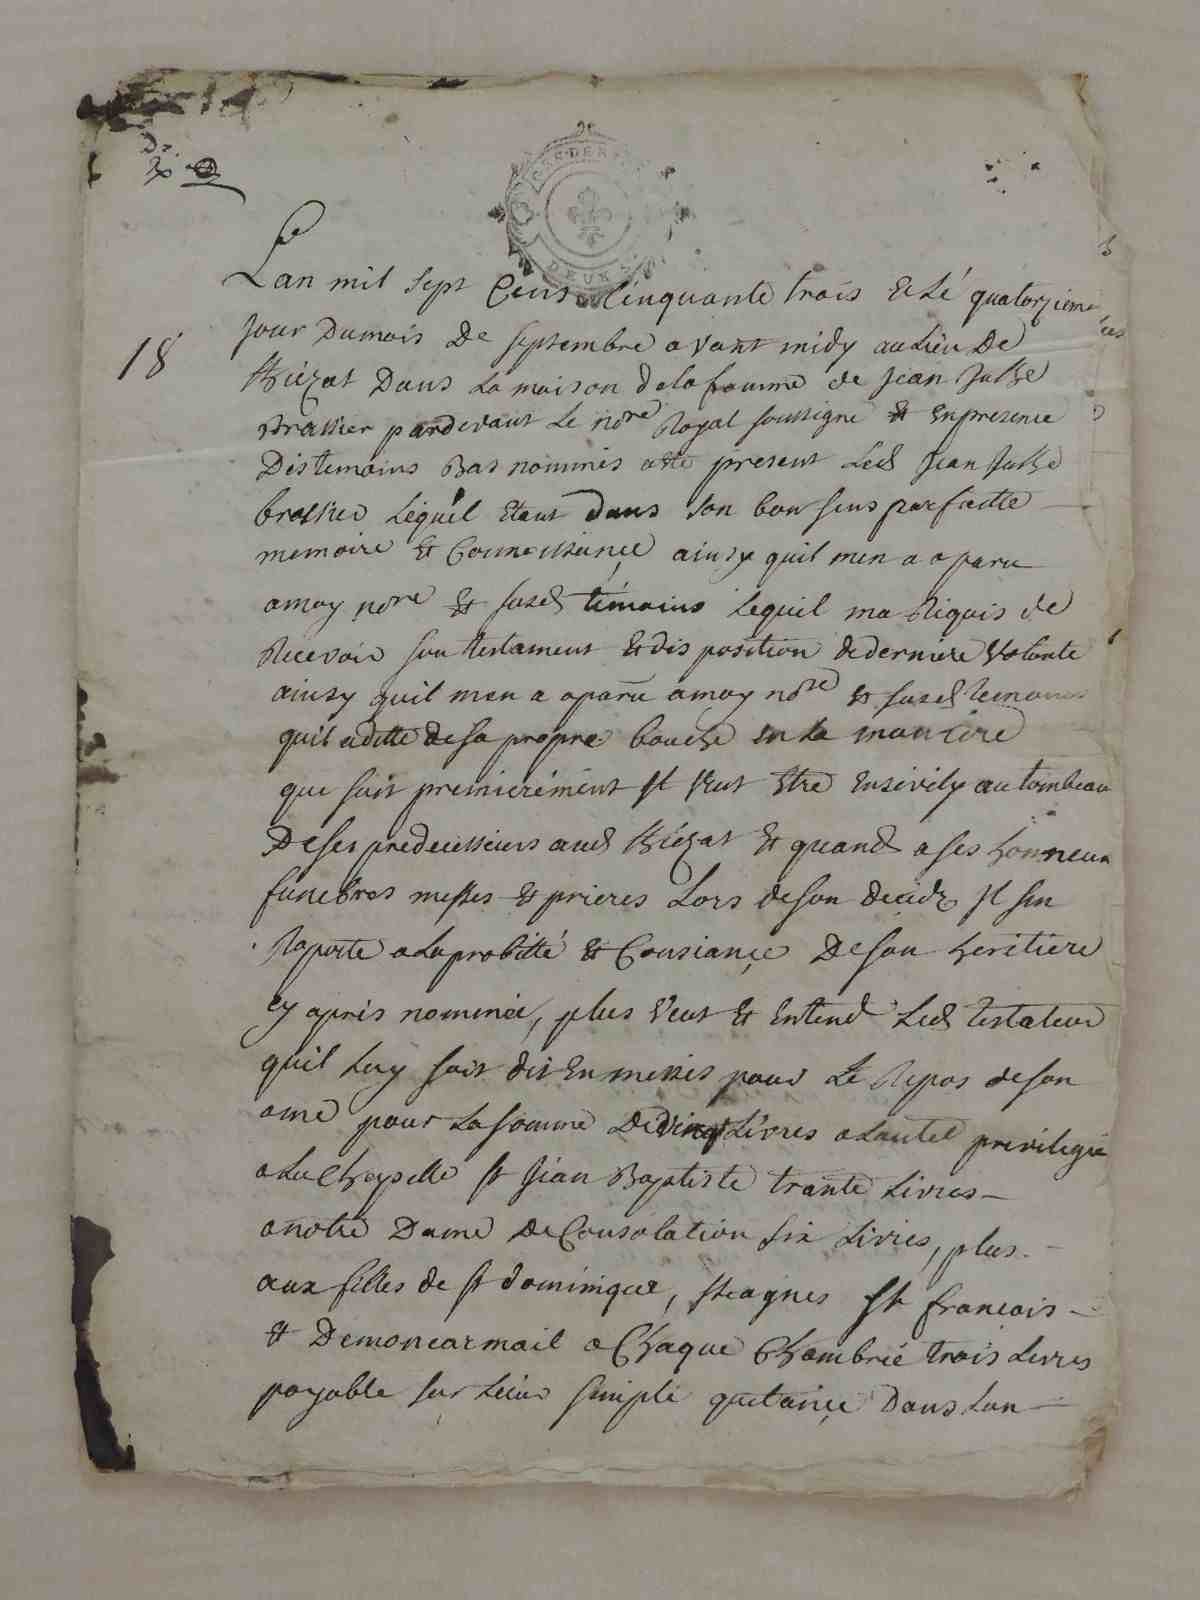 18
Lan mil sept Cens Cinquante trois & Lé quatorzieme
jour Dumois De septembre avant midy au Lieu De
Dans La maison dela femme de Jean
pardevant Le nore Royal soussigné & Enpresence
Destemoins Bas nommés este present Led Jean
Lequel Etant dans son bon sens parfaitte
memoire & Connoissance ainsy quil men a aparu
amoy nore & susds témoins Lequel ma Requis de
Recevoir son testament & dis position dederniere Volonte
ainsy quil men a aparu amoy nore & susds temoins
quil aditte desa propre bouche en La maniere
que suit premierément Il veut Etre Ensevely au tombeau
Deses predecesseurs aud & quand a ses honneurs
funebres messes & prieres Lors deson deceds Il sen
Raporte a Laprobitté & Consiance Deson heritiere
cy aprés nommée, plus Veut & Entend Led testateur
quil Luy soit dit Enmesses pour Le Repos deson
ame pour La somme Devingt Livres a Lautel previlegié
a La Chapelle st Jean Baptiste trante Livres
anotre Dame De Consolation six Livres, plus
aux filles de st dominique, ste agnes st françois
& Demoncarmail a Chaque Chambrée trois Livres
payable sur Leur simple quitance Dans Lan